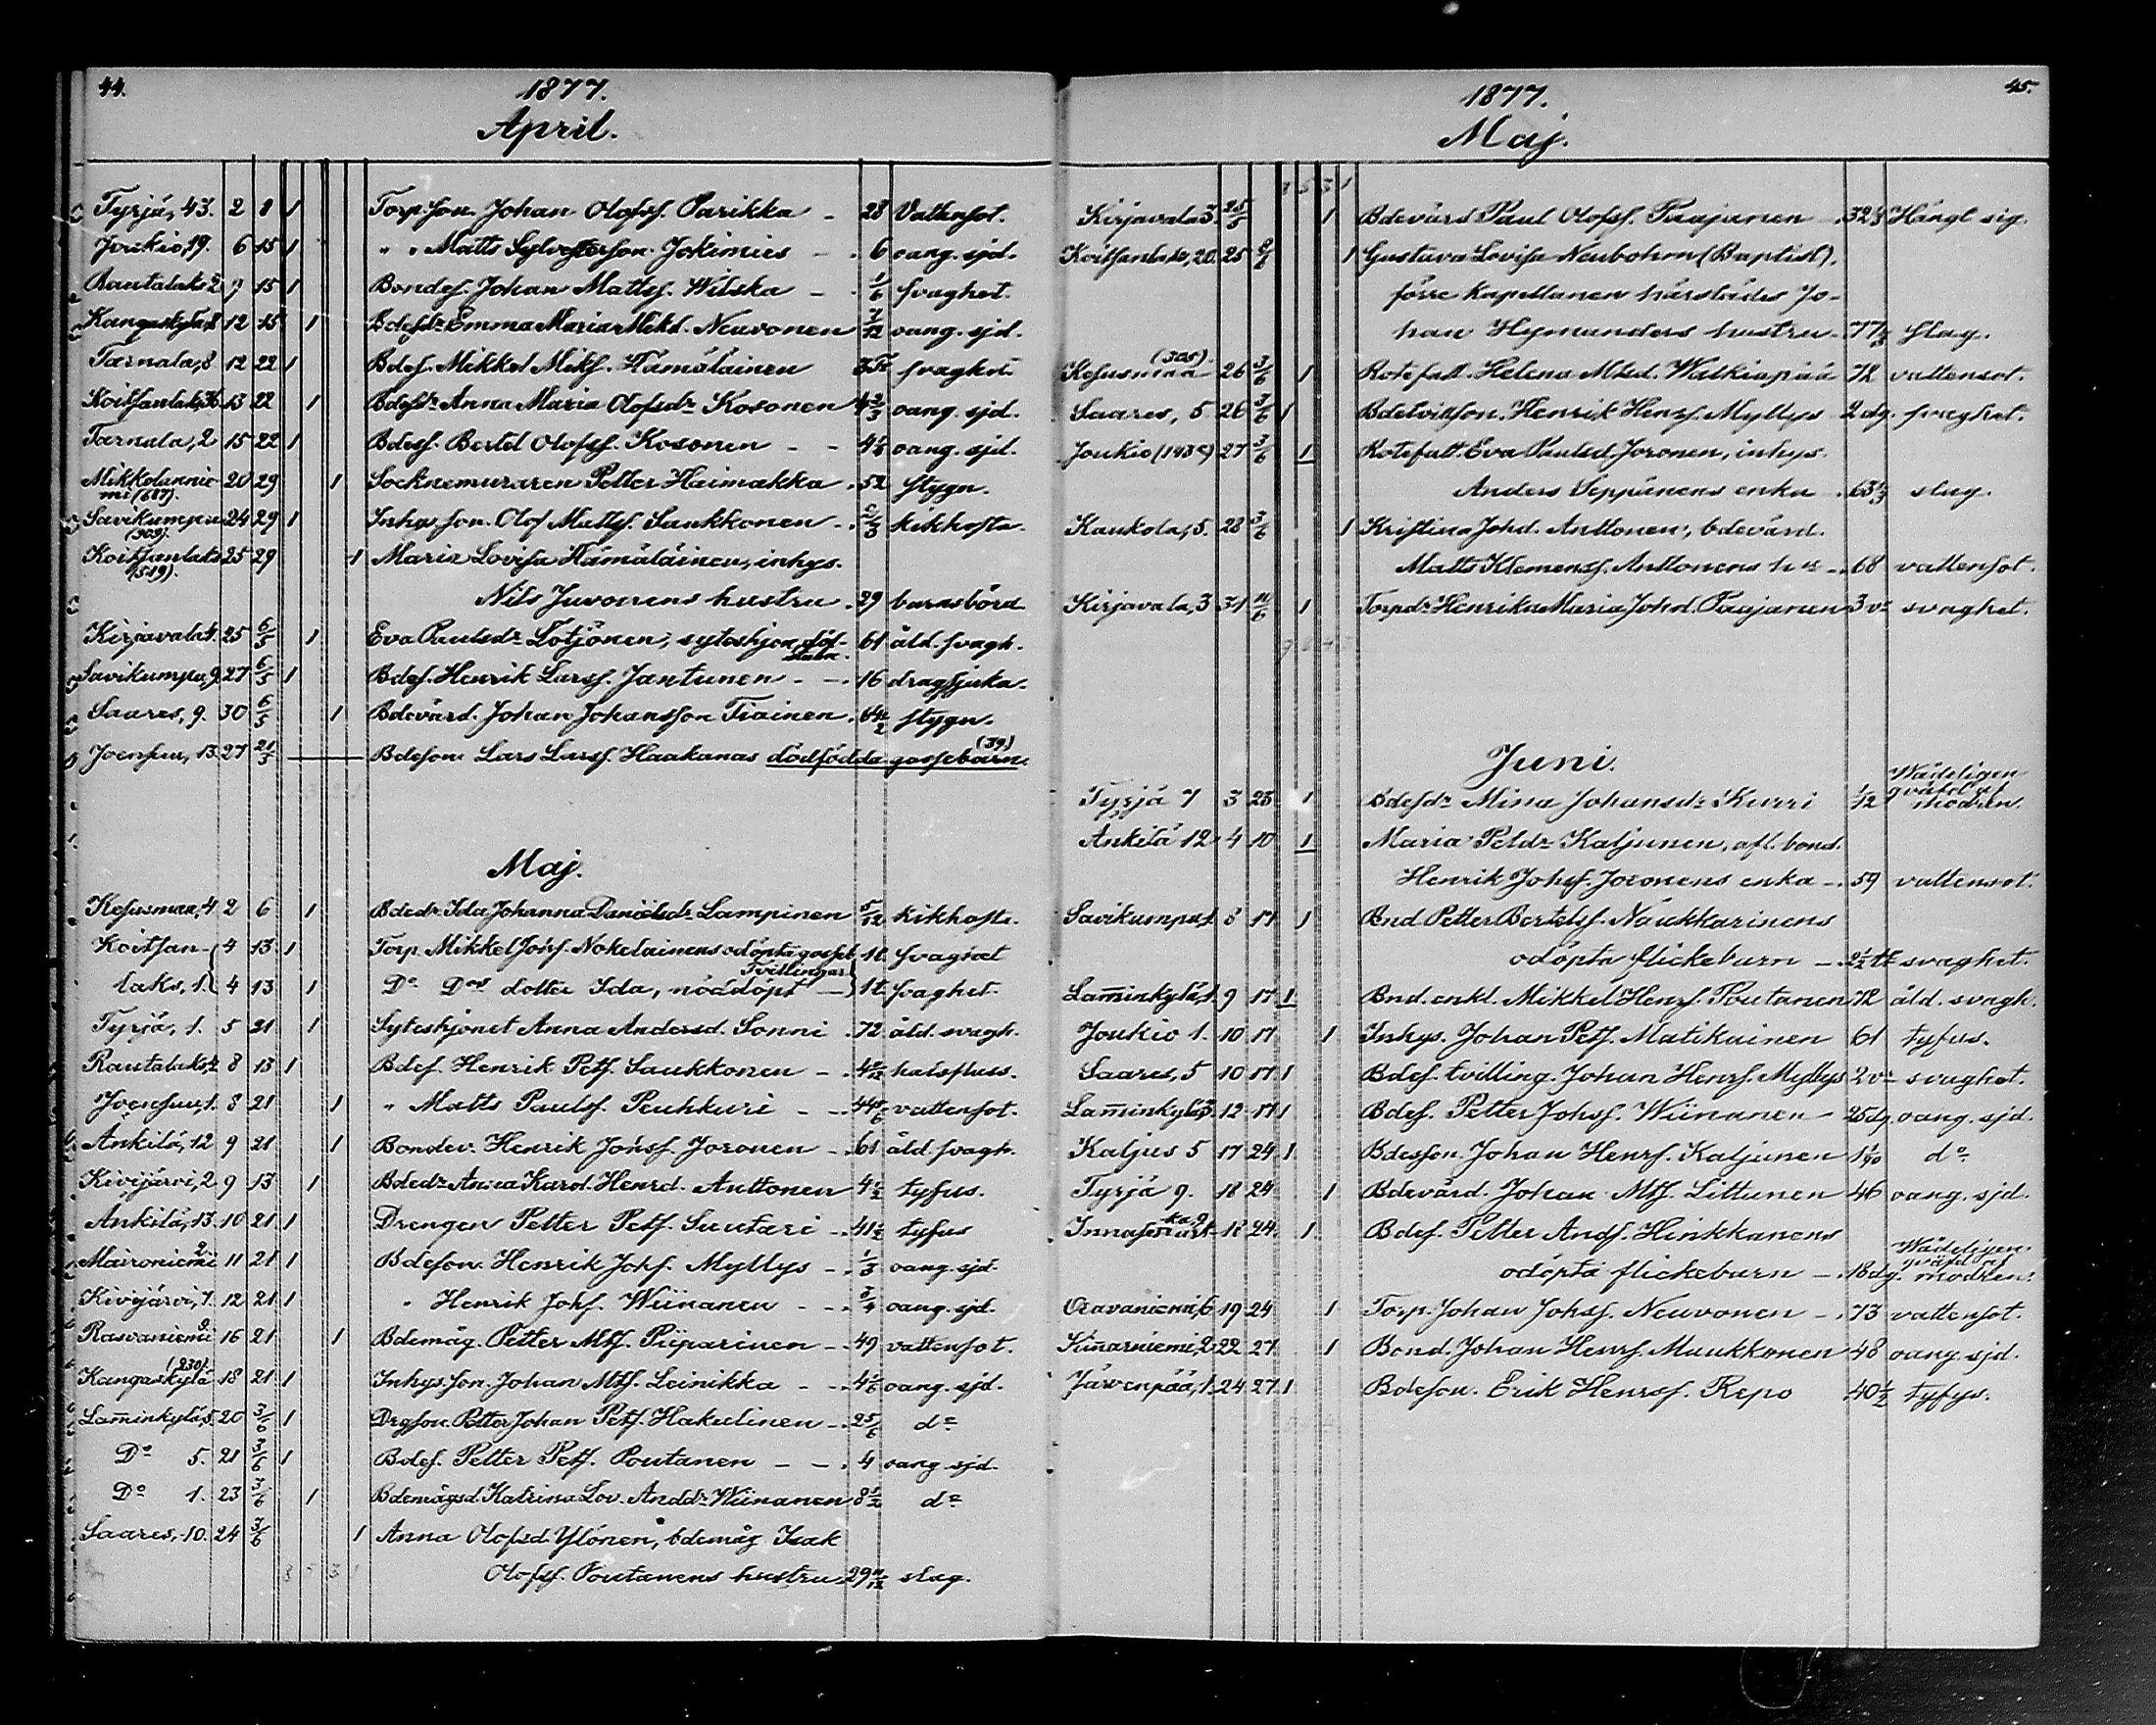 44.
1877.
April.
Tyrjä, 43. 2 8 1 Torp.son. Johan Olofss. Parikka - 28 Vattensot.
Joukio, 19. 6 15 1 " " Matts Sylvesterson. Jokimies - - 6 oang. sjd.
Rautalaks 2 9 15 1 Bondes. Johan Mattss. Wilska - 1/6 svaghet.
Kangaskylä 12 15 1 Bdesdr Emma Maria Mikd. Neuvonen 7/12 oang. sjd.
Tarnala, 8 12 22 1 Bdes. Mikkel Miks. Hämäläinen svaghet.
Koitsanlaks, 36. 13 22 1 Bdesdr Anna Maria Olofsdr Kosonen oang. sjd.
Tarnala, 2 15 22 1 Bdess. Bertel Olofss. Kosonen - - oang. sjd.
Mikkolannie- 20 29 1 Socknemuraren Petter Haimakka - 52 stygn.
mi (687).
Savikumpu 24 29 1 Inhys.son. Olof Mattss. Saukkonen - 2/3 kikhosta.
(303).
Koitsanlaks 25 29 1 Maria Lovisa Hämäläinen, inhys.
(519).
Nils Juvonens hustru - 29 barnsbörd
Kirjavala 4. 25 6/5 1 Eva Paulsdr Lötjönen, syteshjon, döf- 61 åld. svagh.
stum.
Savikumpu, 9. 27 6/5 1 Bdes. Henrik Larss. Jantunen - - 16 dragsjuka.
Saares, 9. 30 6/5 1 Bdevärd. Johan Johansson Tiainen. 64 1/2 stygn.
Joensuu, 13. 27 21/5 Bdeson. Lars Larss. Haakanas dödfödda gossebarn.
(39.)
Maj.
Kesusmaa, 4 2 6 1 Bdedr Ida Johanna Danielsdr Lampinen 5/12 kikhosta.
Koitsan- 4 13 1 Torp. Mikkel Johss. Nokelainens odöpta gosseb. svaghet
Tvillingar
laks, 1. 4 13 1 Do Dos dotter Ida, nöddöpt - svaghet.
Tyrjä, 1. 5 21 1 Syteshjonet Anna Andersd. Sonni - 72 åld. svagh.
Rautalaks, 2 8 13 1 Bdes. Henrik Pets. Saukkonen - - halsfluss.
Joensuu 1. 8 21 1 " Matts Paulss. Peuhkuri - - vattensot.
Ankilä, 12 9 21 1 Bondev. Henrik Johss. Joronen - 61 åld. svagh.
Kivijärvi, 2 9 13 1 Bdedr Anna Karol. Henrd. Anttonen 4 1/2 tyfus.
Änkilä, 13. 10 21 1 Drengen Petter Pets. Suutari - 41 1/2 tyfus
2.
Maironiemi 11 21 1 Bdeson. Henrik Johs. Myllys - 1/3 oang. sjd.
Kivijärvi, 7. 12 21 1 " Henrik Johs. Wiinanen - - 3/4 oang. sjd.
9.
Rasvaniemi 16 21 1 Bdemåg. Petter Mts. Piiparinen - 49 vattensot.
(230).
Kangaskylä 18 21 1 Inhys.son. Johan Mts. Leinikka - 4 1/6 oang. sjd.
Laminkylä, 5. 20 3/6 1 Drgson. Petter Johan Pets. Hakulinen - 2 5/6 do
Do 5. 21 3/6 1 Bdes. Petter Pets. Poutanen - - 4 oang. sjd.
Do 1. 23 3/6 1 Bdemågsd. Katrina Lov. Anddr Wiinanen 8 1/2 do
Saares, 10. 24 3/6 1 Anna Olofsd. Ylönen, bdemåg Isak
Olofss. Poutanens hustru - 29 11/12 slag.
45.
1877.
Maj.
Kirjavala 3. 25 1 Bdevärd Paul Olofss. Paajanen - 32 1/3 Hängt sig.
Koitsanlaks, 20. 25 3/6 1 Gustava Lovisa Neubohrn (Baptist),
förre kapellanen härstädes Jo-
han Hymanders hustru - 77 slag.
(305).
Kesusmaa 26 3/6 1 Rotefatt. Helena Mtsd. Walkiapää 72 vattensot.
Saares, 5. 26 3/6 1 Bdetvillson. Henrik Henrs. Myllys 2 dg. svaghet.
Joukio (143c) 27 3/6 1 Rotefatt. Eva Paulsd. Joronen, inhys.
Anders Seppänens enka - 63 1/3 slag.
Kaukola, 5. 28 3/6 1 Kristina Johd. Anttonen, bdevärd.
Matts Klemenss. Anttonens hu - 68 vattensot.
Kirjavala, 3 31 1 Torpdr Henrika Maria Johd. Paajanen 3 vr svaghet.
Juni.
Tyrjä 7 3 23 1 Bdesdr Mina Johansdr Kurri 1/12 Wådeligen
qväfd af
modren.
Änkilä 12 4 10 1 Maria Petdr Kaljunen, afl. bond.
Henrik Johss. Joronens enka - 59 vattensot.
Savikumpu 1. 8 17 1 Bnd Petter Bertelss. Naukkarinens
odöpta flickebarn - svaghet.
Laminkylä, 1. 9 17 1 Bnd.enkl. Mikkel Henrs. Poutanen 72 åld. svagh.
Joukio 1. 10 17 1 Inhys. Johan Pets. Matikainen 61 tyfus.
Saares, 5 10 17 1 Bdes. tvilling. Johan Henrs. Myllys 2 vr svaghet.
Laminkylä, 3. 12 17 1 Bdes. Petter Johss. Wiinanen 25 dg. oang. sjd.
Kaljus 5 17 24 1 Bdesson. Johan Henrs. Kaljunen do
Tyrjä 9. 18 24 1 Bdevärd. Johan Mts. Littunen 46 oang. sjd.
18 24. 1 Bdes. Petter Ands. Hinkkanens
odöpta flickebarn - 18 dg. Wådeligen
qväfd af
modren.
Oravaniemi, 6 19 24 1 Torp. Johan Johss. Neuvonen - 73 vattensot.
Kinarniemi, 2. 22 27 1 Bond. Johan Henrs. Muukkonen 48 oang. sjd.
Järvenpää, 1. 24 27 1 Bdeson. Erik Henrss. Repo 40 1/2 tyfys.